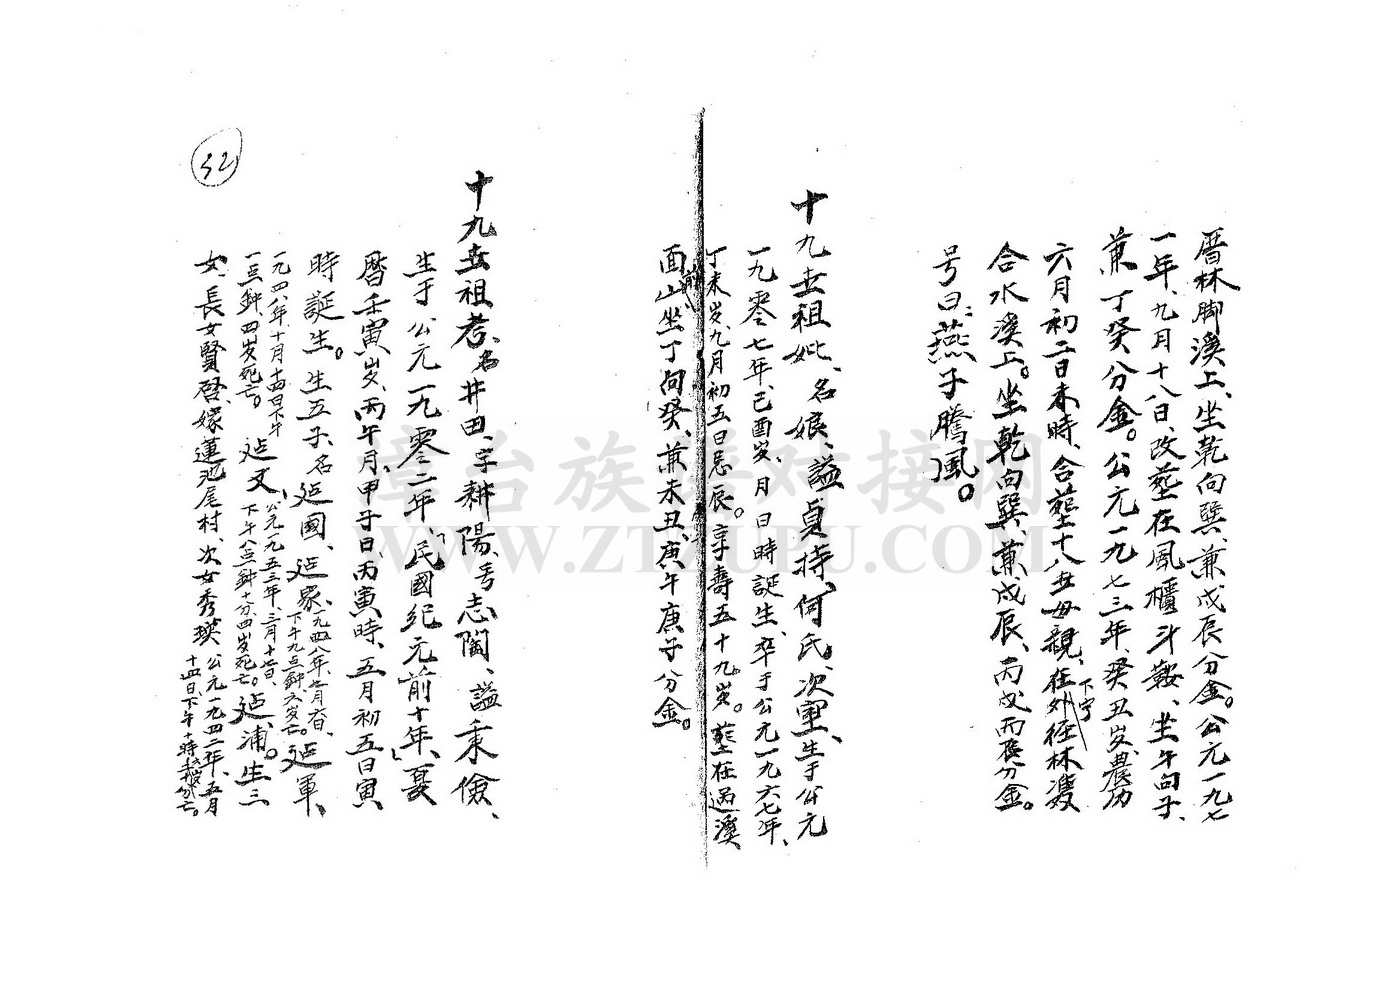 厝林脚溪上、坐乾向巽、兼戊辰分金。公元一九七
一年、九月十八日、改塟在風櫃斗鞍、坐午向子、
兼丁癸分金。公元一九七三年、癸丑岁、農历
六月初二日未時、合塟十八世母親、在外径林溇
下宁
合水溪上。坐乾向巽、兼戌辰、丙戌丙辰分金。
号曰：燕子騰風。
十九世祖妣、名娘、謚貞持、何氏、次室、生于公元
一九零七年、己酉岁、月日時誕生、卒于公元一九六七年、
丁未岁、九月初五日忌辰。享壽五十九岁。塟在過溪
面前山坐丁向癸、兼未丑、庚午庚子分金。
十九世祖考、名井田、字耕陽、号志閣、謚秉儉、
生于公元一九零二年、「民國纪元前十年」、夏
曆壬寅岁、丙午月、甲子日、丙寅時、五月初五日寅
時誕生。生五子、名廷國、廷家、一九四八年七月六日、下午九点鈡、六岁亡。廷軍、
一九四八年十月十四日下午一点鈡四岁死亡。廷文、公元一九五三年、三月十七日、下午八点鈡十分、四岁死亡。廷浦。生三
女、長女賢啓、嫁蓮池尾村、次女秀瑛、公元一九四二年、五月十四日下午十時
32
章台族譜对接网
WWW.ZTZUPU.COM